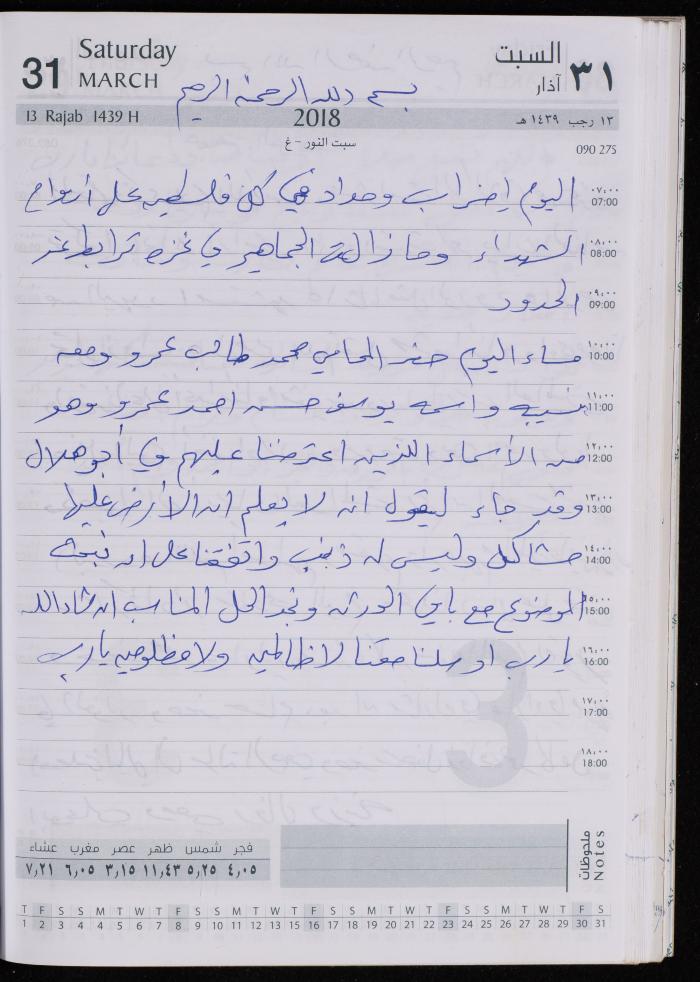 31 Saturday MARCH السبت آذار ٣١
بسم الله الرحمن الرحيم
13 Rajab 1439 H 2018 ١٣ رجب ١٤٣٩ هـ
سبت النور - غ
090 275
اليوم إضراب وحداد في كل فلسطين على أرواح ٠٧:٠٠ 07:00
الشهداء وما زالت الجماهير في غزه ترابط عند ٠٨:٠٠ 08:00
الحدود ٠٩:٠٠ 09:00
مساء اليوم حضر المحامي محمد طالب عمرو ومعه ١٠:٠٠ 10:00
نسيبه واسمه يوسف حسن احمد عمرو وهو ١١:٠٠ 11:00
من الأسماء اللذين اعترضنا عليهم في أبو هلال ١٢:٠٠ 12:00
وقد جاء ليقول انه لا يعلم ان الأرض عليها ١٣:٠٠ 13:00
مشاكل وليس له ذنب واتفقنا على ان نبحث ١٤:٠٠ 14:00
الموضوع مع باقي الورثه ونجد الحل المناسب ان شاء الله ١٥:٠٠ 15:00
يا رب اوصلنا حقنا لا ظالمين ولا مظلومين يا رب ١٦:٠٠ 16:00
١٧:٠٠ 17:00
١٨:٠٠ 18:00
ملحوظات Notes
فجر شمس ظهر عصر مغرب عشاء
٤,٠٥ ٥,٢٥ ١١,٤٣ ٣,١٥ ٦,٠٥ ٧,٢١
T F S S M T W T F S S M T W T F S S M T W T F S S M T W T F S
1 2 3 4 5 6 7 8 9 10 11 12 13 14 15 16 17 18 19 20 21 22 23 24 25 26 27 28 29 30 31